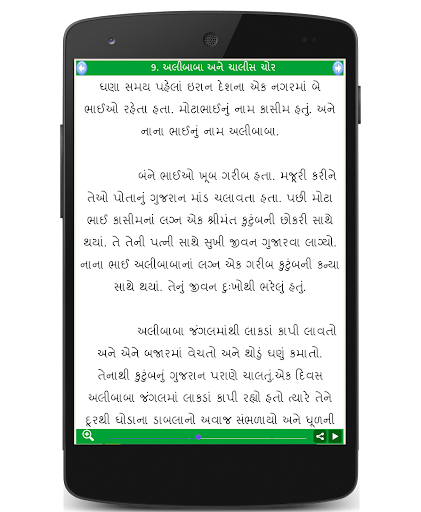 ૧. અલીબાબા અને ચાલીસ ચોર
ઘણા સમય પહેલાં ઇરાન દેશના એક નગરમાં બે
ભાઈઓ રહેતા હતા. મોટાભાઈનું નામ કાસીમ હતું. અને
નાના ભાઈનું નામ અલીબાબા.
બંને ભાઈઓ ખૂબ ગરીબ હતા. મજૂરી કરીને
તેઓ પોતાનું ગુજરાન માંડ ચલાવતા હતા. પછી મોટા
ભાઈ કાસમનાં લગ્ન એક શ્રીમંત કુટુંબની છોકરી સાથે
થયાં. તે તેની પત્ની સાથે સુખી જીવન ગુજારવા લાગ્યો.
નાના ભાઈ અલીબાબાનાં લગ્ન એક ગરીબ કુટુંબની કન્યા
સાથે થયાં. તેનું જીવન દુઃખોથી ભરેલું હતું.
અલીબાબા જંગલમાંથી લાકડાં કાપી લાવતો
અને એને બજારમાં વેચતો અને થોડું ઘણું કમાતો.
તેનાથી કુટુંબનું ગુજરાન પરાણે ચાલતું.એક દિવસ
અલીબાબા જંગલમાં લાકડાં કાપી રહ્યો હતો ત્યારે તેને
દૂરથી ઘોડાના ડાબલાનો અવાજ સંભળાયો અને ધૂળની